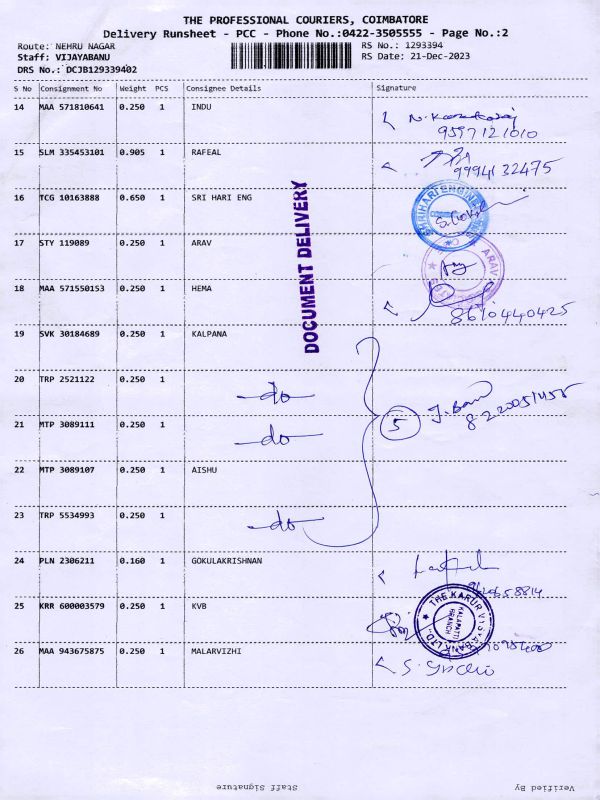 THE PROFESSIONAL COURIERS, COIMBATORE
Delivery Runsheet - PCC - Phone No.:0422-3505555 - Page No.:2
Route: NEHRU NAGAR RS No.: 1293394
Staff: VIJAYABANU RS Date: 21-Dec-2023
DRS No.: DCJB129339402
S No Consignment No Weight PCS Consignee Details Signature
14 MAA 571810641 0.250 1 INDU
9597121010
15 SLM 335453101 0.905 1 RAFEAL
9994132475
16 TCG 10163888 0.650 1 SRI HARI ENG
SHRIHARI ENGINEE
17 STY 119089 0.250 1 ARAV
ARAV
18 MAA 571550153 0.250 1 HEMA
8610440425
DOCUMENT DELIVERY
19 SVK 30184689 0.250 1 KALPANA
20 TRP 2521122 0.250 1 do
21 MTP 3089111 0.250 1 do
5
22 MTP 3089107 0.250 1 AISHU
23 TRP 5534993 0.250 1 do
24 PLN 2306211 0.160 1 GOKULAKRISHNAN
25 KRR 600003579 0.250 1 KVB
THE KARUR VYSYA BANK LTD.
KALAPATTI BRANCH
26 MAA 943675875 0.250 1 MALARVIZHI
Staff Signature Verified By